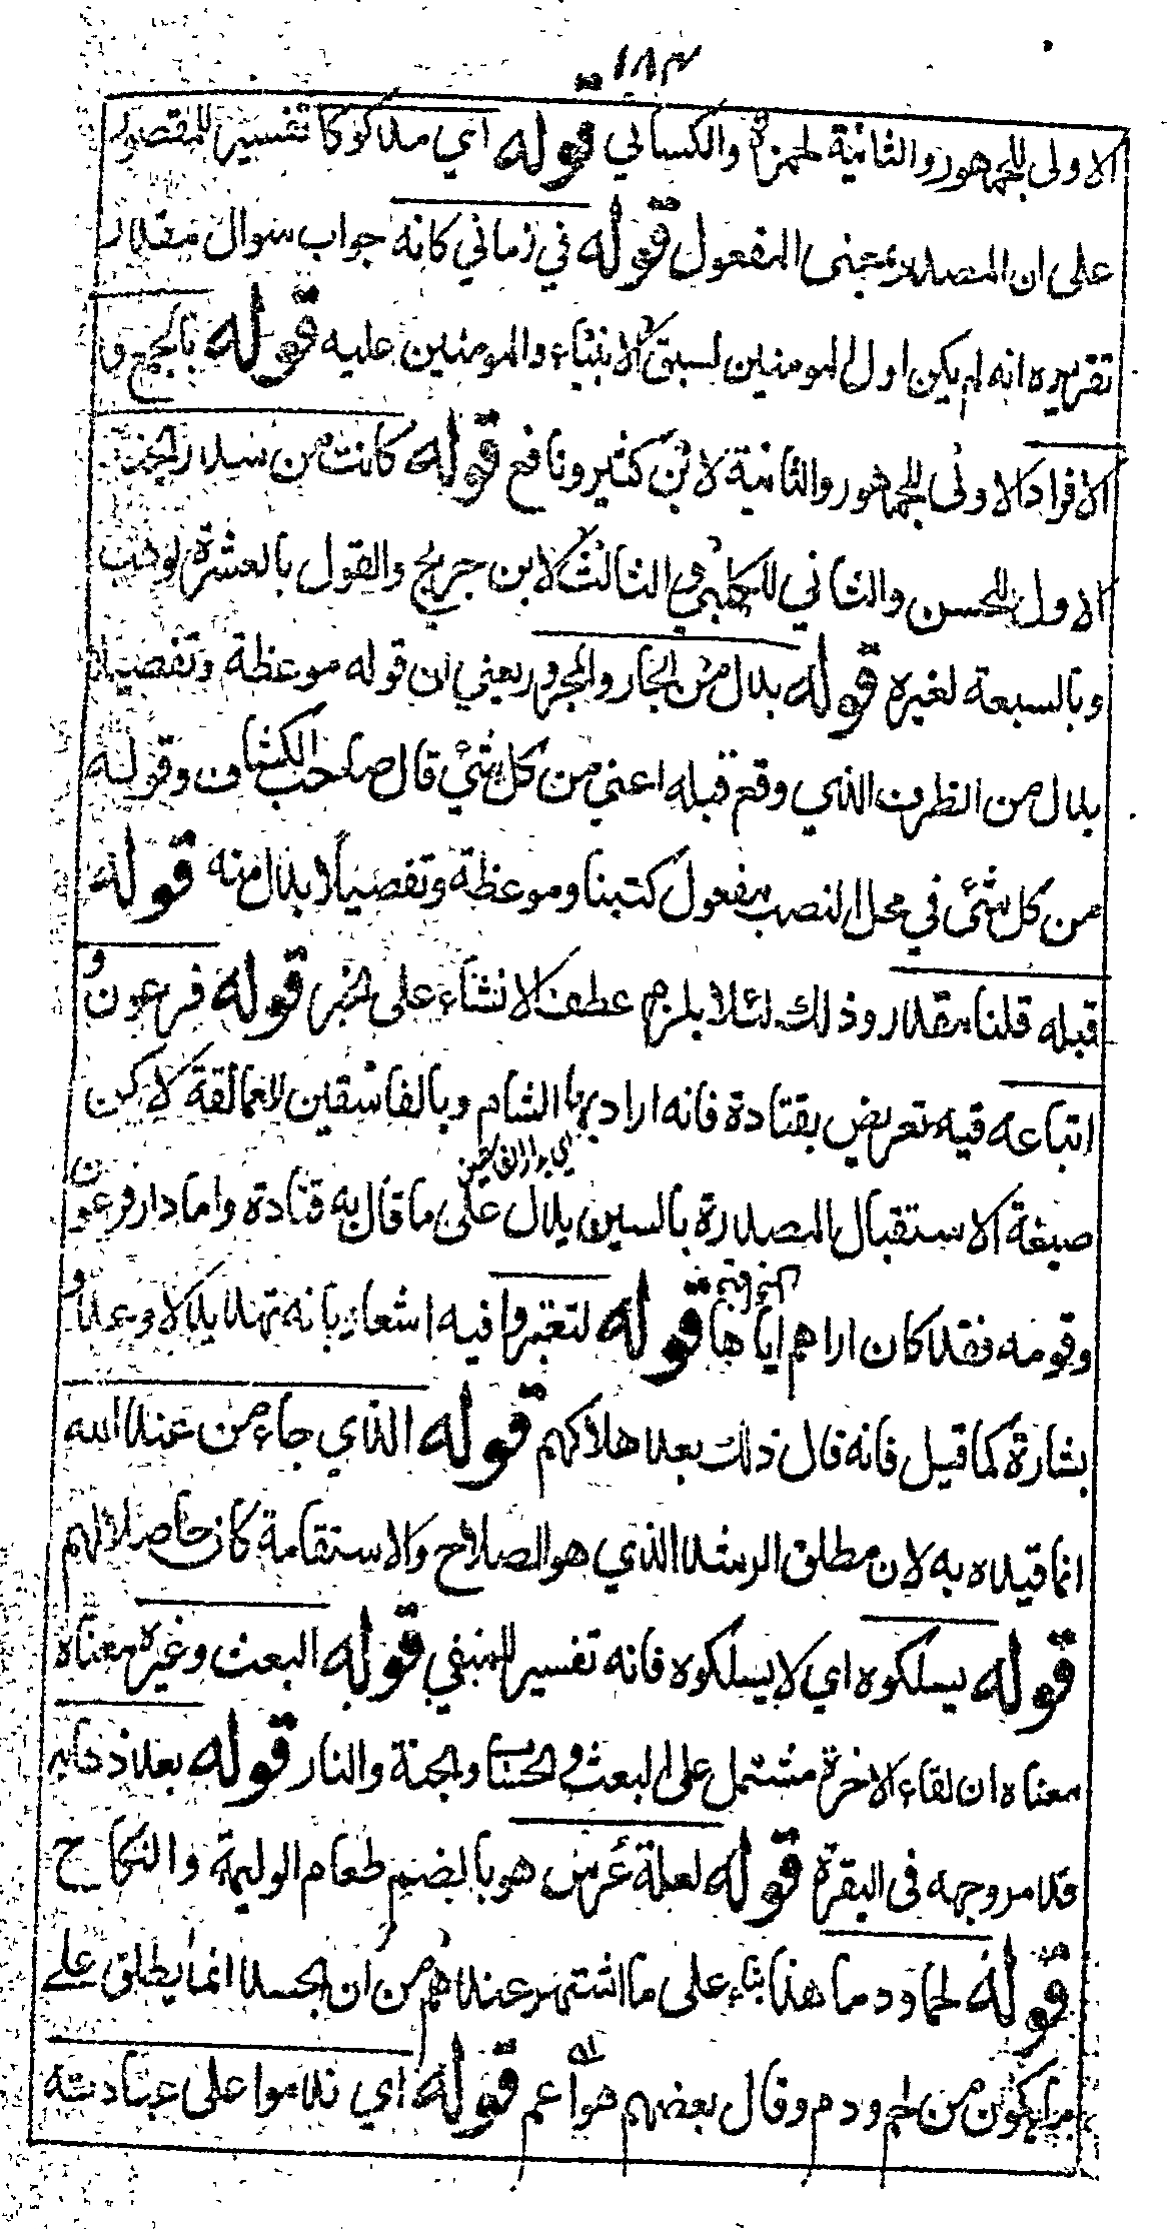 ١٨٣
الاولى للجمهور والثانية لحمزة والكسائي قوله اي مدكوكا تفسير للمقصور
على ان المصدر بمعنى المفعول قوله في زماني كانه جواب سوال مقدر
تقريره انه لم يكن اول المومنين لسبق الانبياء والمومنين عليه قوله بالجمع و
الافراد الاولى للجمهور والثانية لابن كثير ونافع قوله كانت من سدر الجنة
الاول للحسن والثاني للكلبي والثالث لابن جريج والقول بالعشرة لوهب
وبالسبعة لغيره قوله بدل من الجار والمجرور يعني ان قوله موعظة وتفصيلا
بدل من الظرف الذي وقع قبله اعني من كل شيء قال صاحب الكشاف وقوله
من كل شئ في محل النصب مفعول كتبنا وموعظة وتفصيلا بدل منه قوله
قبله قلنا مقدر وذلك لئلا يلزم عطف الانشاء على الخبر قوله فرعون و
اتباعه فيه تعريض بقتادة فانه اراد بها الشام وبالفاسقين العمالقة لاكن
اي بدار الفاسقين
صيغة الاستقبال المصدرة بالسين يدل على ما قال به قتادة واما دار فرعون
وقومه فقد كان اراهم اياها قوله لتعتبروا فيه اشعار بانه تهديد لا وعد و
بشارة كما قيل فانه قال ذلك بعد هلاكهم قوله الذي جاء من عند الله
انما قيده به لان مطلق الرشد الذي هو الصلاح والاستقامة كان حاصلا لهم
قوله يسلكوه اي لا يسلكوه فانه تفسير للمنفي قوله البعث وغيره معناه
معناه ان لقاء الاخرة مشتمل على البعث والحساب والجنة والنار قوله بعد ذهابه
قد مر وجهه في البقرة قوله لعلة عرس هو بالضم طعام الوليمة والنكاح
قوله لحما ودما هذا بناء على ما اشتهر عندهم من ان الجسد انما يطلق على
ما يكون من لحم ودم وقال بعضهم هو اعم قوله اي ندموا على عبادته